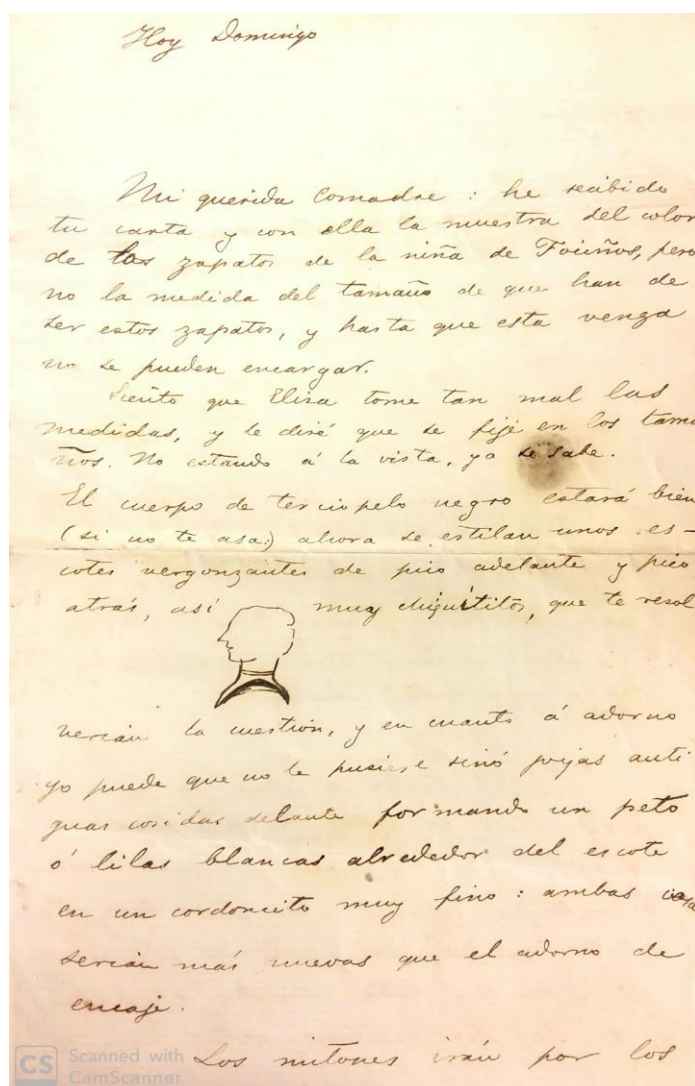 Hoy Domingo
Mi querida Comadre : he recibido
tu carta y con ella la muestra del color
de los zapatos de la niña de Fouiños, pero
no la medida del tamaño de que han de
ser estos zapatos, y hasta que esta venga
no se pueden encargar.
Siento que Elisa tome tan mal las
medidas, y le diré que se fije en los tama
ños. No estando á la vista, ya se sabe.
El cuerpo de terciopelo negro estará bien
(si no te asa;) ahora se estilan unos es-
cotes vergonzantes de pico adelante y pico
atrás, así muy chiquititos, que te resol
verian la cuestión, y en cuanto á adorno
yo puede que no le pusiese sinó joyas anti
guas cosidas delante formando un peto
ó lilas blancas alrededor del escote
en un cordoncito muy fino : ambas cosas
serían más nuevas que el adorno de
encaje.
Los mitones irán por los
CS Scanned with
CamScanner